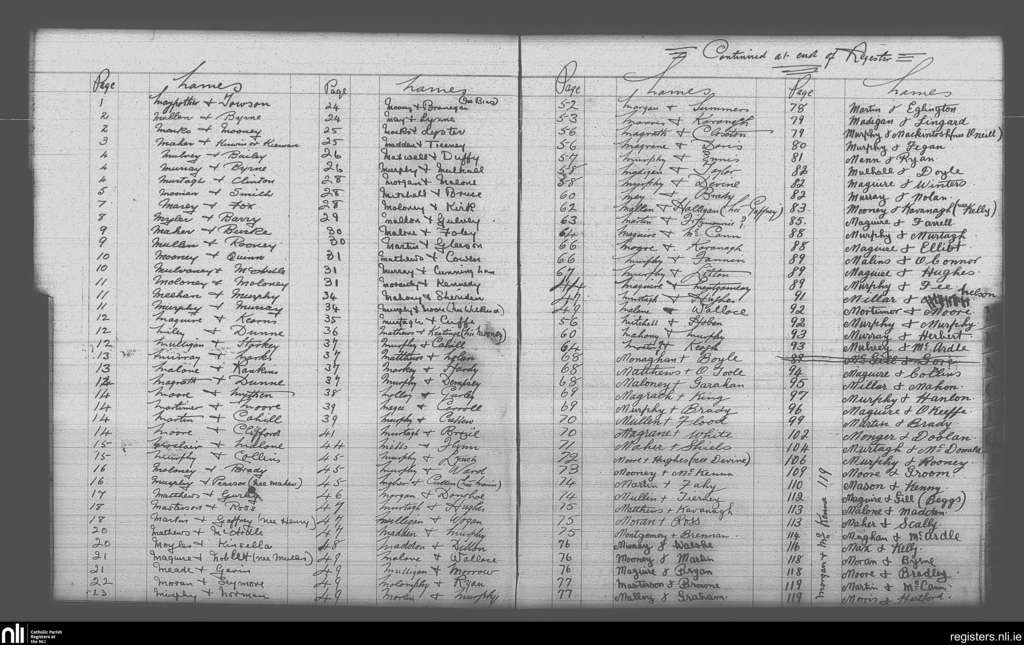 Continued at end of Register
Page Names Page Names
1 Maypother & Towson
2 Mallen & Byrne
2 Marks & Mooney
3 Maher & Kirwin or Kierwan
4 Mulvey & Bailey
4 Murray & Byrne
4 Murtagh & Clinton
5 & Smith
7 Marey & Fox
8 Myler & Barry
9 Maher & Burke
9 Mullen & Rooney
10 Mooney & Quinn
10 Mulvaney &
11 Moloney & Moloney
11 Meehan & Murphy
11 Murphy & Murray
12 Maguire & Kearns
12 & Dunne
12 Mulligan & Starkey
13 Murray &
13 Malone & Rankins
14 Magrath & Dunne
14 Moore &
14 Mortimer & Moore
14 Martin & Cahill
14 Moore & Clifford
15 & Malone
15 Murphy & Collins
16 Moloney & Brady
16 Murphy & (nee Maher)
17 Matthews &
18 Masterson & Ross
18 Martin & Gaffney (nee Henry)
20 Mathews & McArdle
20 Moyles & Kinsella
21 Maguire & (nee Mullen)
21 Meade & Gavin
22 Moran & Seymore
23 Murphy & Norman
24 Mooney & Branegan
24 May & Byrne
25 & Lyster
25 Madden & Tierney
26 Maxwell & Duffy
26 Murphy & Mulhall
28 Morgan & Malone
28 Mitchell & Bruce
28 Moloney & Kirk
29 Mallon &
30 Malone & Foley
30 Martin & Gleeson
31 Mathews &
31 Murray & Cunningham
31 & Kennedy
34 Mahony & Sheridan
34 Murphy &
35 Murtagh & Cuffe
36 Mathews & (nee Mooney)
37 Murphy & Cahill
37 Matthews & Nolan
37 & Hardy
37 Murphy & Dempsey
38
39 & Carroll
39 Murphy &
41 Murtagh &
44 & Flynn
45 Murphy & Lynch
45 Murphy & Ward
45 & Cullen
46 Morgan & Donohoe
47 Murtagh & Hughes
47 Mulligan & Wogan
47 Madden & Murphy
48 Madden & Dillon
49 Malone & Wallace
49 Mulligan & Morrow
49 & Ryan
49 & Murphy
Page Names Page Names
52 Morgan & Summers
53 & Kavanagh
56 Magrath &
56 Megrane & Davis
57 Murphy & Ennis
58 Madigan & Taylor
58 Murphy & Devine
60 May & Brady
62 Mallen & Halligan (nee Gaffney)
63 Martin & Fitzsimons ?
64 Maguire & McCann
66 Moore & Kavanagh
66 Murphy & Fannen
67 Murphy &
44 Maguire & Montgomery
47 Murtagh & Hughes
49 Malone & Wallace
56 Mitchell & Hoban
60 Mahony & Murphy
64 & Keogh
68 Monaghan & Boyle
68 Matthews & O'Toole
68 Maloney & Garahan
69 Magrath & King
69 Murphy & Brady
70 Mullen & Flood
70 Magrane & White
71 Maher & Shiels
72 & Hughes (nee Devine)
73 Mooney & McKenna
74 Martin & Fahy
74 Mullin & Tierney
75 Matthews & Kavanagh
75 Moran & Ross
75 Montgomery & Brennan
76 Murray & Walshe
76 Mooney & Martin
76 Maguire & Bryan
77 Masterson & Browne
77 Mallory & Graham
78 Martin & Eglington
79 Madigan & Lingard
79 Murphy & Mackintosh (nee O'Neill)
80 Murphy & Fegan
81 Mann & Ryan
82 Mulhall & Doyle
82 Maguire & Winters
82 Murray & Nolan
83 Mooney & Kavanagh (nee Kelly)
85 Maguire & Farrell
88 Murphy & Murtagh
88 Maguire & Elliot
89 Malins & O'Connor
89 Maguire & Hughes
89 Murphy & Fee
91 Millar & Nelson
92 Mortimer & Moore
92 Murphy & Murphy
93 Murray & Herbert
93 Mulvey & McArdle
89 McGill &
94 Maguire & Collins
95 Millar & Mahon
97 Murphy & Hanlon
96 Maguire & O'Keiffe
99 Martin & Brady
102 Monger & Doolan
104 Murtagh & McDonald
106 Murphy & Rooney
109 Moore & Groom
110 Mason & Kenny
112 Maguire & Gill (Beggs)
113 Malone & Madden
113 Maher & Scally
114 Meighan & McArdle
116 Max & Kelly
118 Moran & Byrne
118 Moore & Bradley
119 Martin & McCann
119 Morris & Hartford
Morgan & McKenna 119
nli
Catholic Parish
Registers at
the NLI
registers.nli.ie